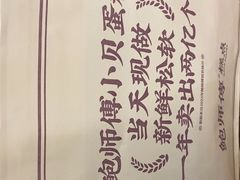 鲍师傅小贝蛋糕
当天现做
新鲜松软
一年卖出两亿个
鲍师傅糕点